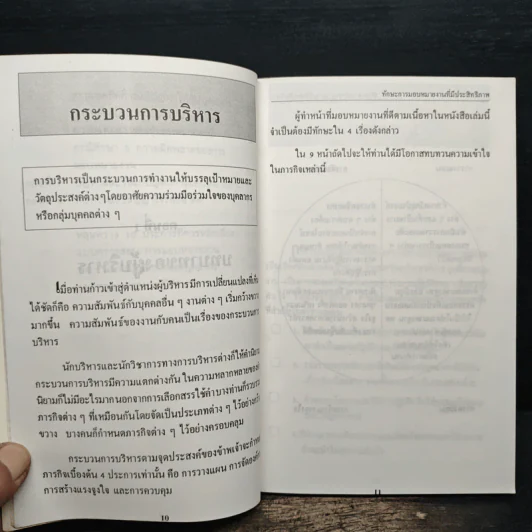 กระบวนการบริหาร
การบริหารเป็นกระบวนการทำงานให้บรรลุเป้าหมายและ
วัตถุประสงค์ต่างๆโดยอาศัยความร่วมมือร่วมใจของบุคลากร
หรือกลุ่มบุคคลต่าง ๆ
เมื่อท่านก้าวเข้าสู่ตำแหน่งผู้บริหารมีการเปลี่ยนแปลงที่
ได้ชัดก็คือ ความสัมพันธ์กับบุคคลอื่น ๆ งานต่าง ๆ เริ่มกว้างขวาง
มากขึ้น ความสัมพันธ์ของงานกับคนเป็นเรื่องของกระบวนการ
บริหาร
นักบริหารและนักวิชาการทางการบริหารต่างก็ให้คำนิยาม
กระบวนการบริหารมีความแตกต่างกัน ในความหลากหลายของ
นิยามก็ไม่มีอะไรมากนอกจากการเลือกสรรใช้คำบางท่านก็รวบรวม
ภารกิจต่าง ๆ ที่เหมือนกันโดยจัดเป็นประเภทต่าง ๆ ไว้อย่างกว้าง
ขวาง บางคนก็กำหนดภารกิจต่าง ๆ ไว้อย่างครอบคลุม
กระบวนการบริหารตามจุดประสงค์ของข้าพเจ้าจะกำหนด
ภารกิจเบื้องต้น 4 ประการเท่านั้น คือ การวางแผน การจัดองค์
การสร้างแรงจูงใจ และการควบคุม
10
ทักษะการมอบหมายงานที่มีประสิทธิภาพ
ผู้ทำหน้าที่มอบหมายงานที่ดีตามเนื้อหาในหนังสือเล่มนี้
จำเป็นต้องมีทักษะใน 4 เรื่องดังกล่าว
ใน 9 หน้าถัดไปจะให้ท่านได้มีโอกาสทบทวนความเข้าใจ
ในภารกิจเหล่านี้
11